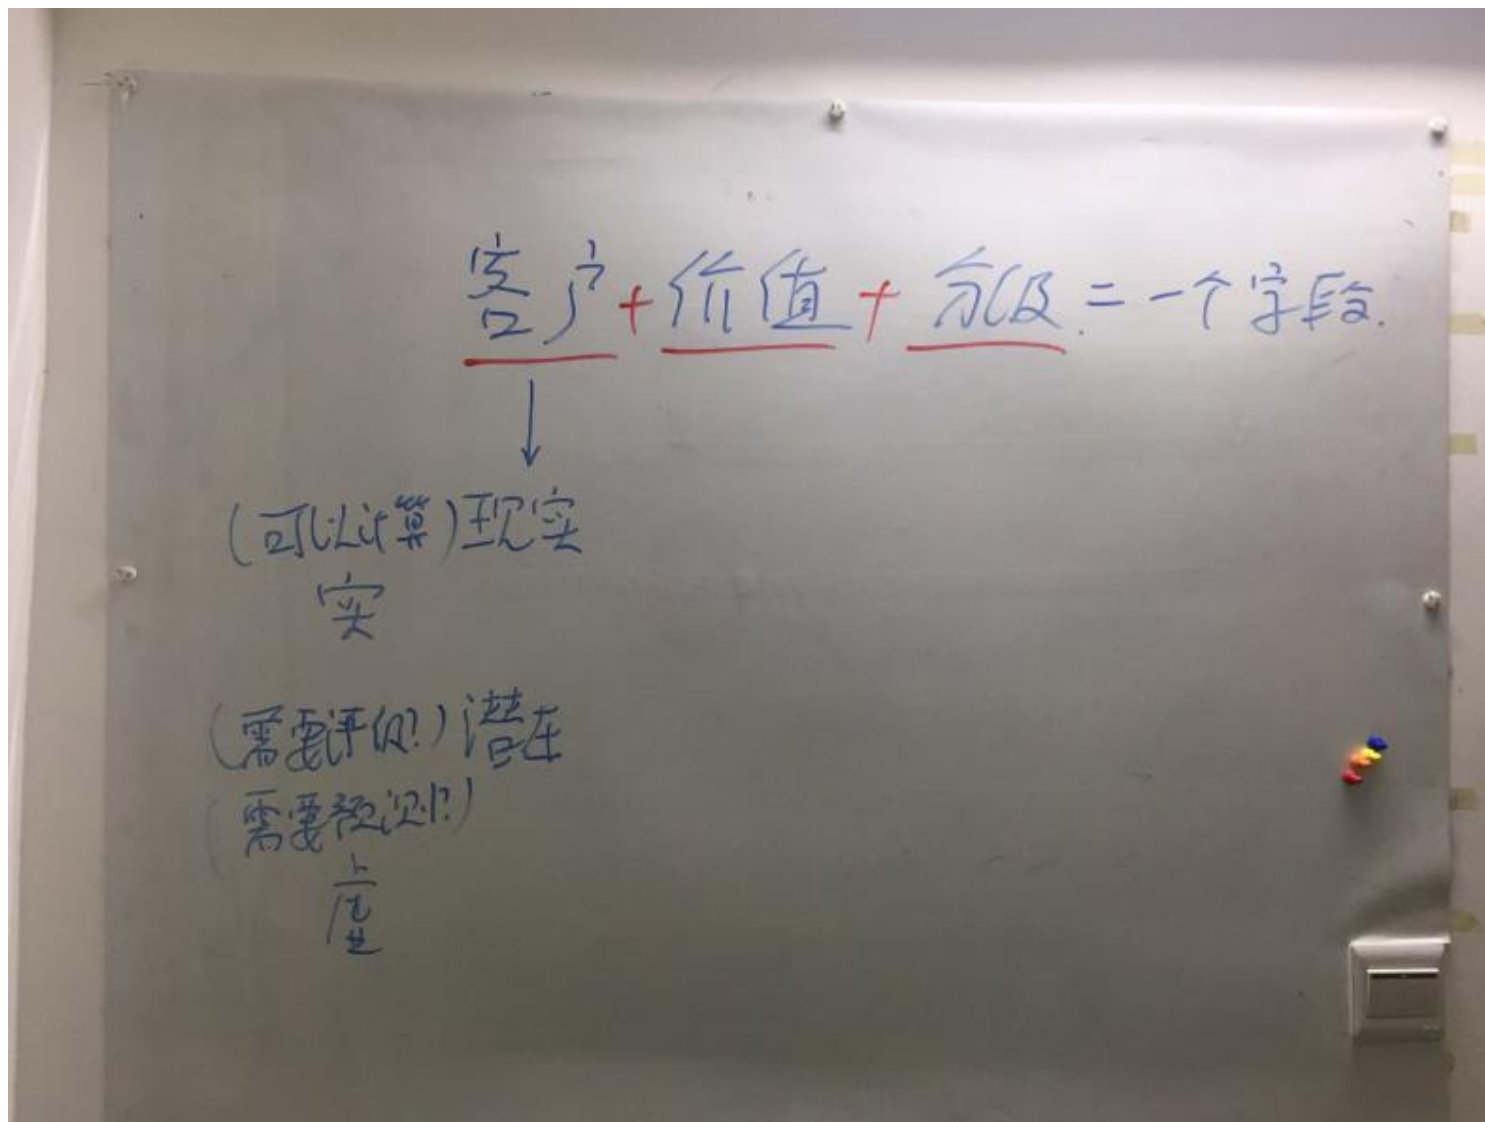 客户+价值+分级=一个字段.
(可以计算)现实
实
(需要评级?)潜在
(需要预测?)
虚